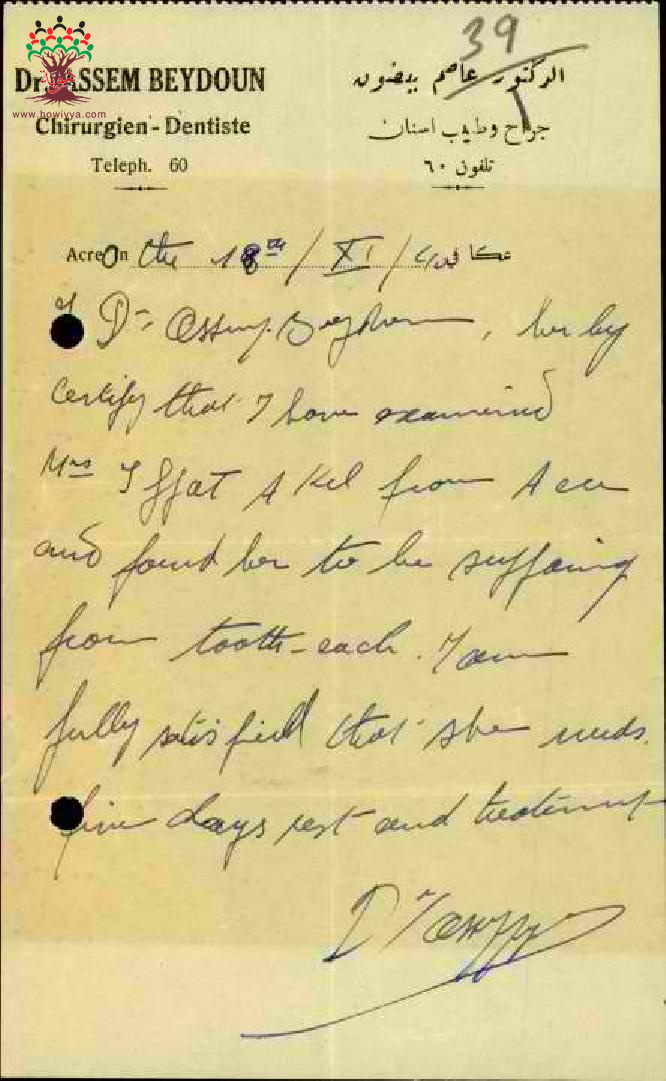 39
Dr. ASSEM BEYDOUN
Chirurgien - Dentiste
Teleph. 60
الدكتور عاصم بيضون
جراح وطبيب اسنان
تلفون ٦٠
www.howiyya.com
Acre On the 18th / XI / عكا في
I Dr Beydoun, her by
certify that I have examined
Mrs Iffat Akel from Acre
and found her to be suffaring
from tooth-each. I am
fully satisfied that she needs
five days rest and treatment
Dr